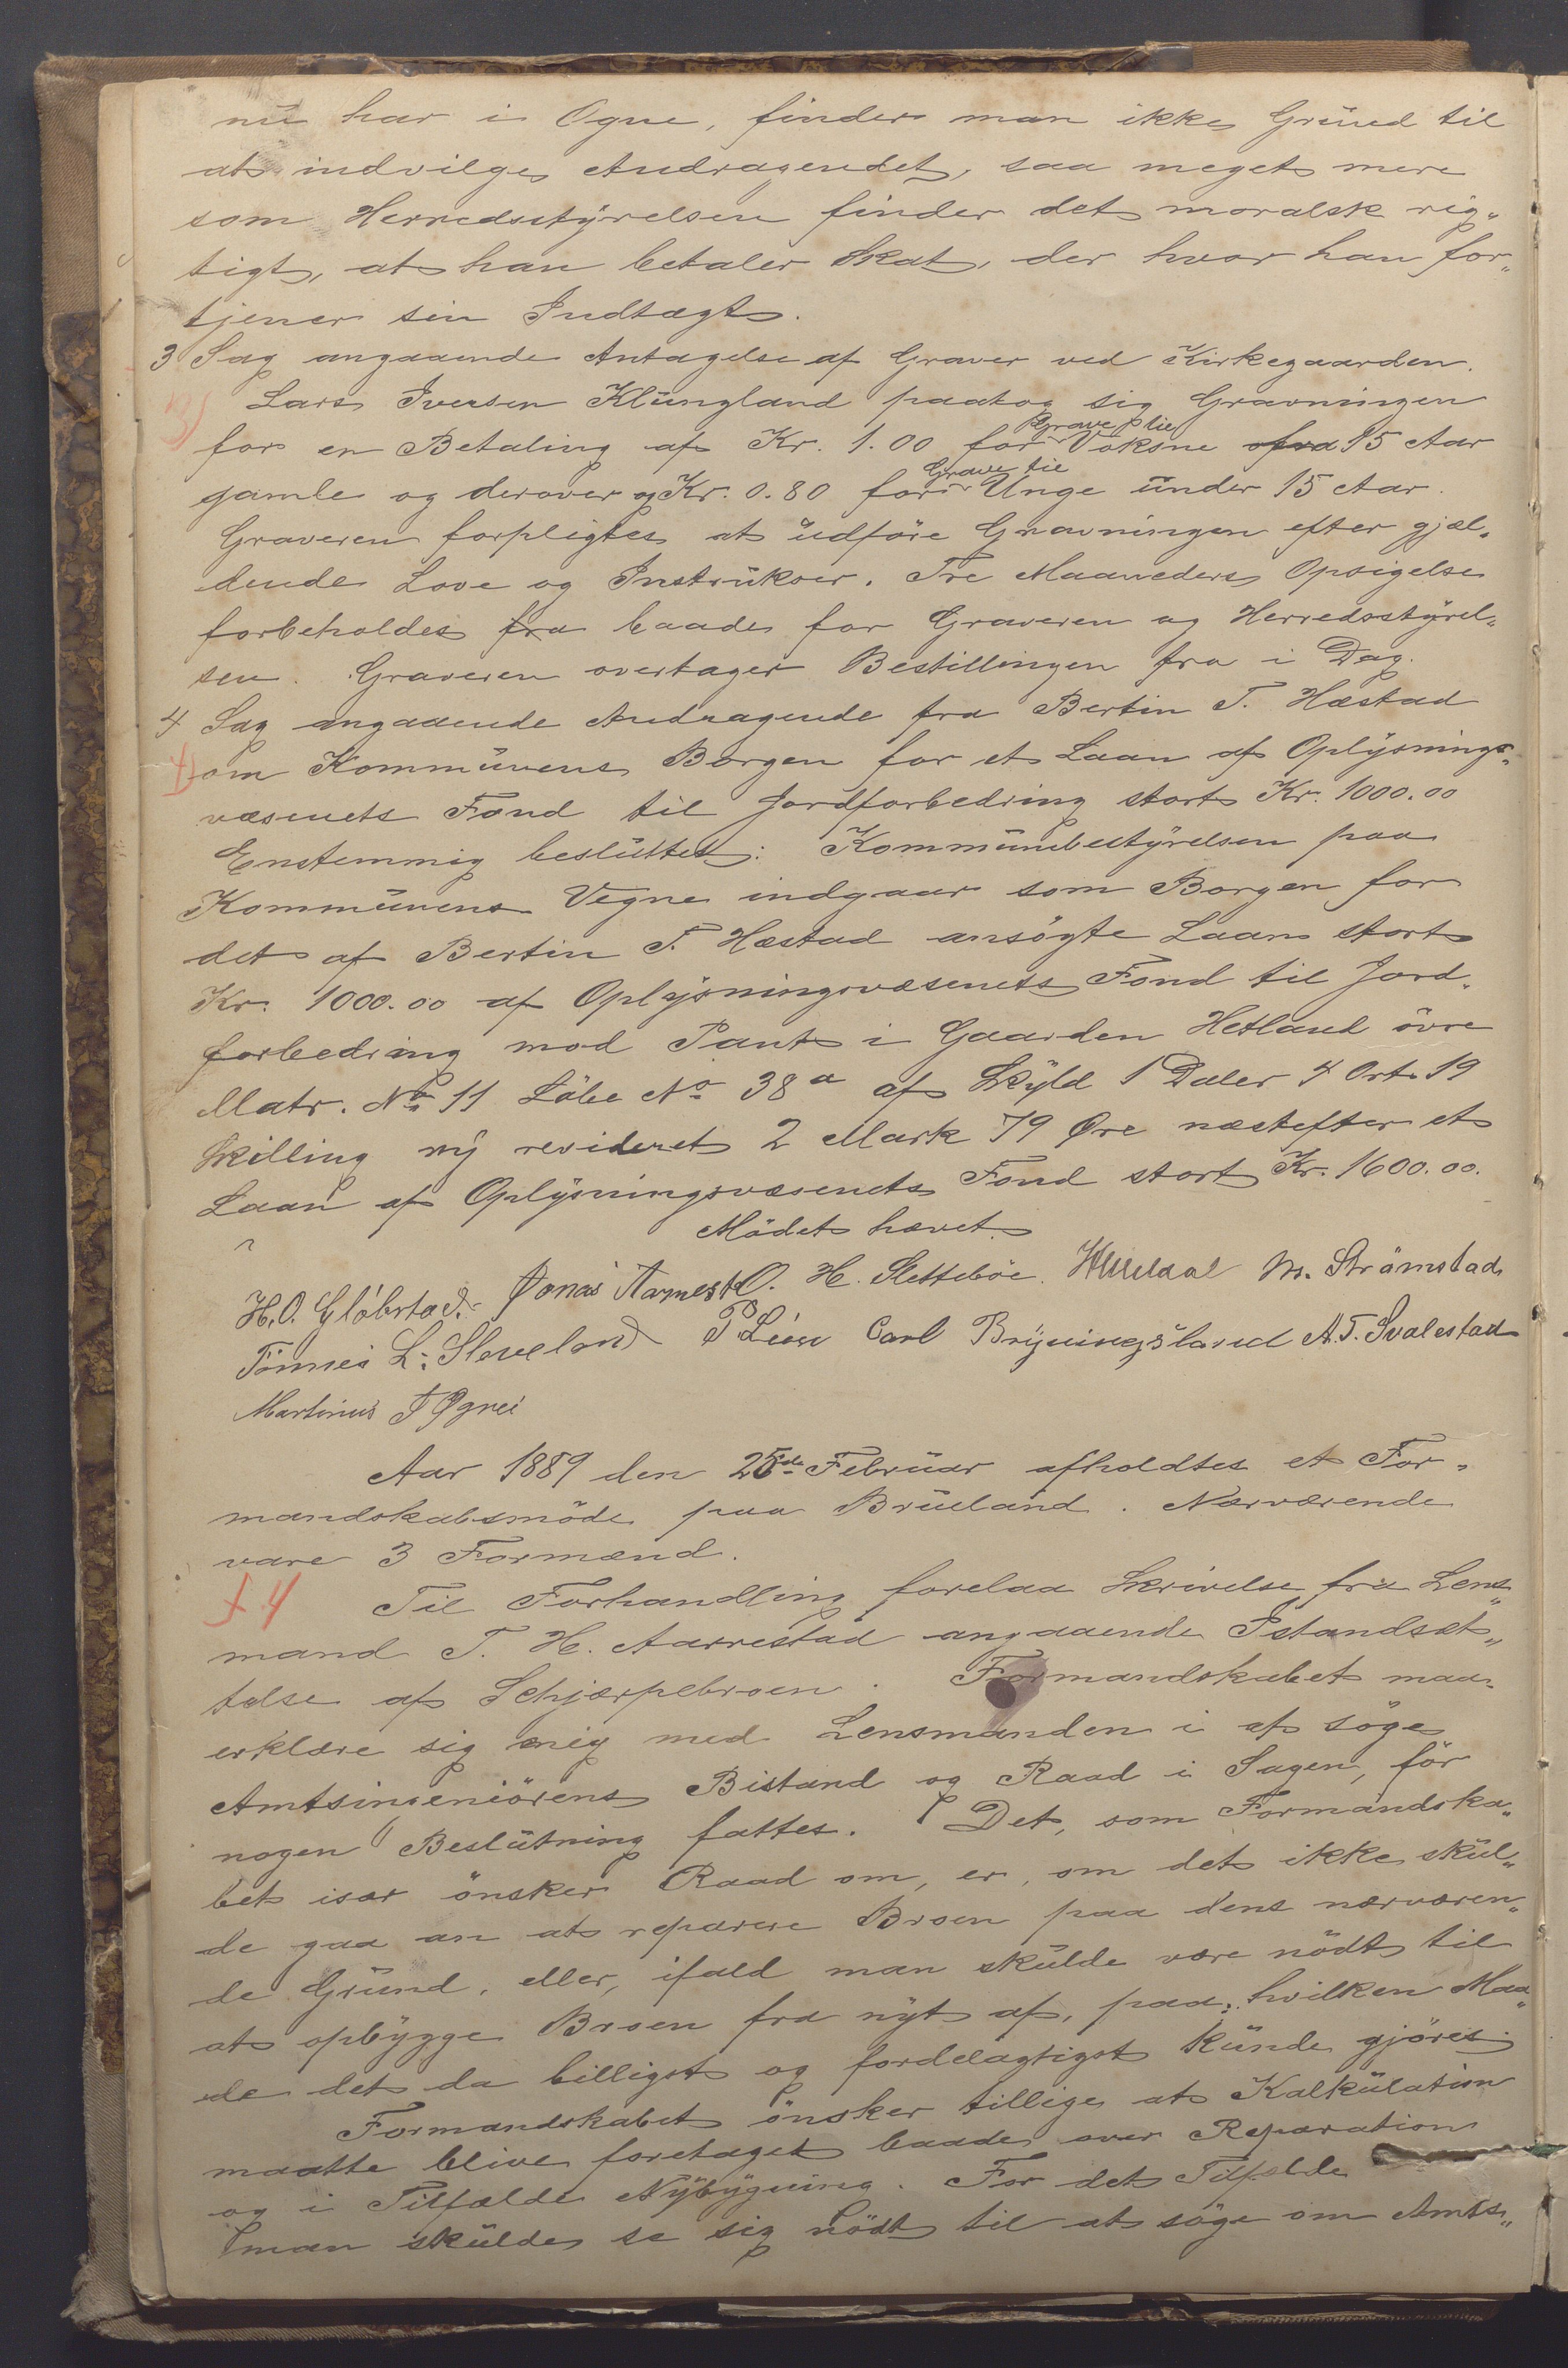 nu har i Ogne, finder man ikke Grund til
at indvilge Andragendet, saa meget mere
som Herredsstyrelsen finder det moralsk rig„
tigt, at han betaler Skat, der hvor han for„
tjener sin Indtægt.
3 Sag angaaende Antagelse af Graver ved Kirkegaarden.
Lars Iversen Klungland paatog sig Gravningen
Grave til
for en Betaling af Kr. 1.00 for Voksne 15 Aar
Grave til
gamle og derover og Kr. 0.80 for Unge under 15 Aar.
Graveren forpligtes at udföre Gravningen efter gjæl„
dende Love og Instrukser. Tre Maaneders Opsigelse
forbeholdes fra baade for Graveren og Herredsstyrel„
sen. Graveren overtager Bestillingen fra i Dag.
4 Sag angaaende Andragende fra Bertin T. Hæstad
om Kommunens Borgen for et Laan af Oplysnings„
væsenets Fond til Jordforbedring stort Kr. 1000.00
Enstemmig besluttet: Kommunebestyrelsen paa
Kommunens Vegne indgaar som Borgen for
det af Bertin T. Hæstad ansögte Laan stort
Kr. 1000.00 af Oplysningsvæsenets Fond til Jord„
forbedring mod Pant i Gaarden Hetland övre
Matr. No 11 Löbe No 38a af Skyld 1 Daler 4 Ort 19
Skilling ny revideret 2 Mark 79 Øre næstefter et
Laan af Oplysningsvæsenets Fond stort Kr. 1600.00.
Mödet hævet.
H. O. Glöbstad. Jonas Aarrest O. H. Sletteböe. M. Strömstad
Tönnes L. Sleveland Carl Bryningsland A. T. Svalestad
Martinus T Ognei
Aar 1889 den 25de Februar afholdtes et For„
mandskabsmöde paa Brueland. Nærværende
vare 3 Formænd.
f. 4 Til Forhandling forelaa Skrivelse fra Lens„
mand T. H. Aarrestad angaaende Istandsæt„
telse af Schjærpebroen. Formandskabet maa
erklære sig enig med Lensmanden i at söge
Amtsingeniörens Bistand og Raad i Sagen, för
nogen Beslutning fattes. Det, som Formandska„
bet især önsker Raad om, er, om det ikke skul„
de gaa an at reparere Broen paa dens nærværen„
de Grund, eller, ifald man skulde være nödt til
at opbygge Broen fra nyt af, paa hvilken Maa„
de det da billigst og fordelagtigst kunde gjöres.
Formandskabet önsker tillige at Kalkulation
maatte blive foretaget baade over Reparation
og i Tilfælde Nybygning. For det Tilfælde
man skulde se sig nödt til at söge om Amts„